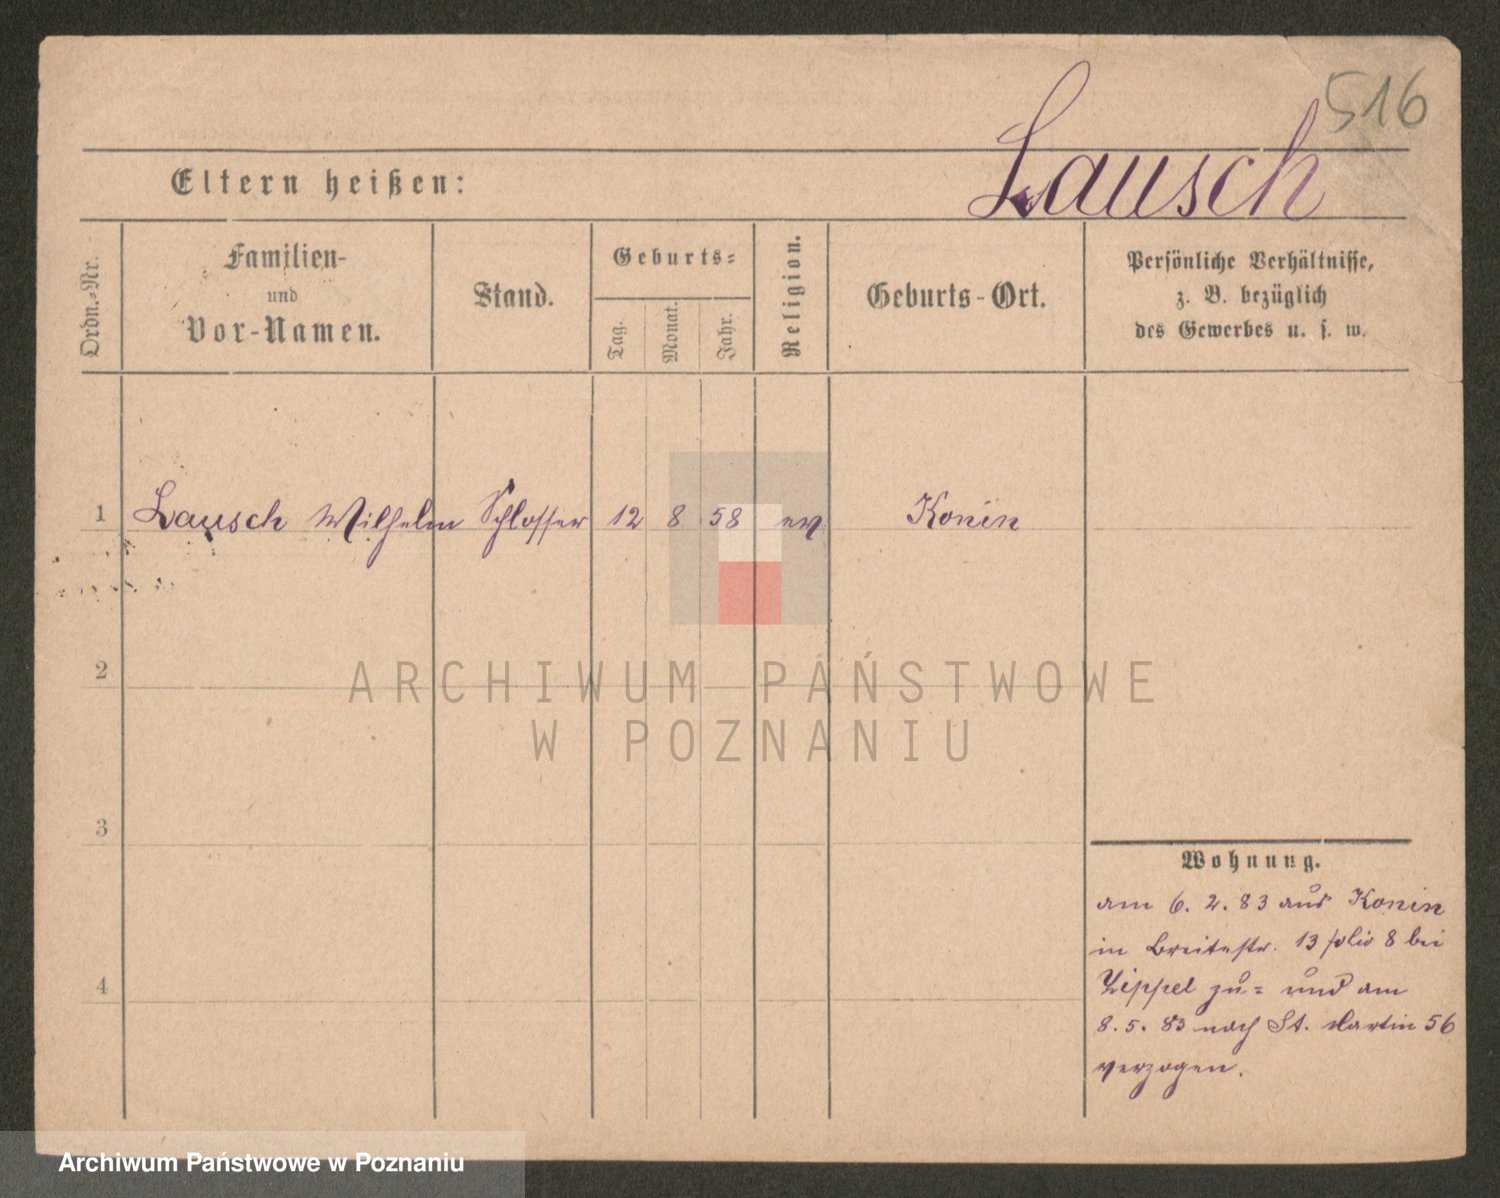 516
Lausch
Eltern heißen:
Ordn.-Nr.
Familien-
und
Vor-Namen.
Stand.
Geburts-
Tag.
Monat.
Jahr.
Religion.
Geburts-Ort.
Persönliche Verhältnisse,
z. B. bezüglich
des Gewerbes u. s. w.
1 Lausch Wilhelm Schlosser 12 8 58 ev Konin
2
ARCHIWUM PAŃSTWOWE
W POZNANIU
3
Wohnung.
am 6. 2. 83 aus Konin
in Breitestr. 13 folio 8 bei
Zippel zu= und am
4
8. 5. 83 nach St. Martin 56
verzogen.
Archiwum Państwowe w Poznaniu